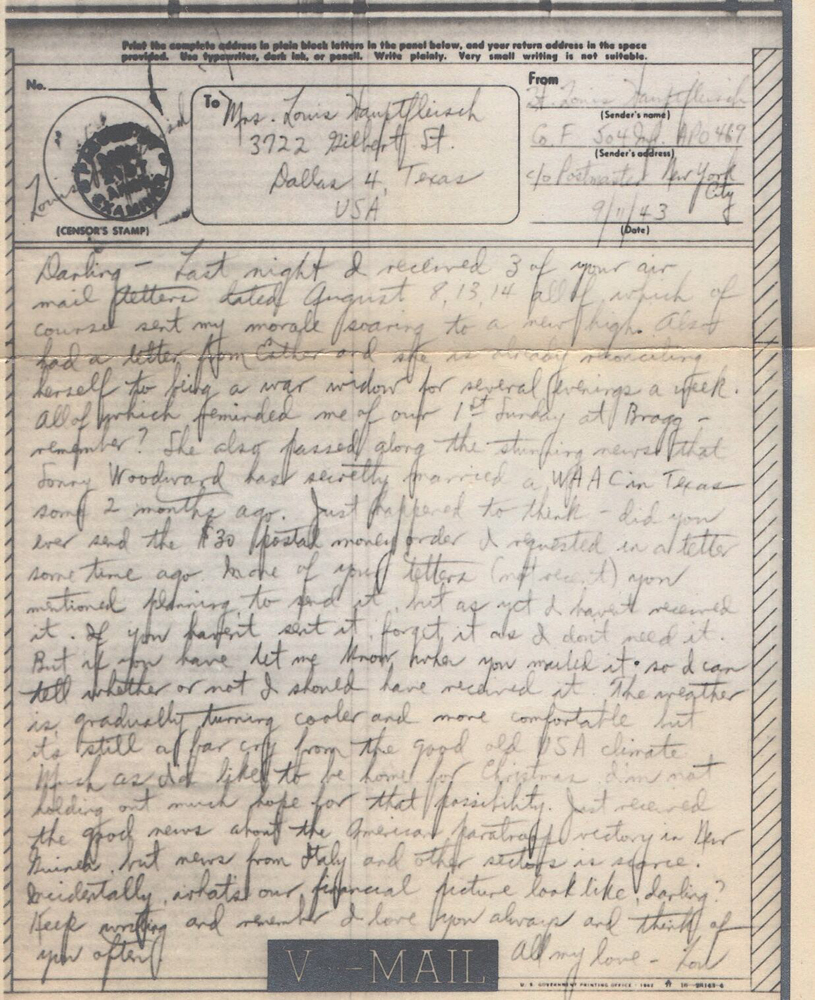 Print the complete address in plain block letters in the panel below, and your return address in the space
provided. Use typewriter, dark ink, or pencil. Write plainly. Very small writing is not suitable.
No.
To Mrs. Louis Hauptfleisch
3722 Gilbert St.
Dallas 4, Texas
USA
(CENSOR'S STAMP)
From
Lt. Louis Hauptfleisch
(Sender's name)
Co. F 504 Inf. APO 469
(Sender's address)
c/o Postmaster New York
City
9/11/43
(Date)
Darling - Last night I received 3 of your air
mail letters dated August 8, 13, 14 all of which of
course sent my morale soaring to a new high. Also
had a letter from Esther and she is already reconciling
herself to being a war widow for several evenings a week.
All of which reminded me of our 1st Sunday at Bragg -
remember? She also passed along the stunning news that
Sonny Woodward has secretly married a WAAC in Texas
some 2 months ago. Just happened to think - did you
ever send the $30 postal money order I requested in a letter
some time ago. In one of your letters (not recent) you
mentioned planning to send it, but as yet I haven't received
it. If you haven't sent it, forget it as I don't need it.
But if you have let me know when you mailed it so I can
tell whether or not I should have received it. The weather
is gradually turning cooler and more comfortable but
it's still a far cry from the good old USA climate
Much as I'd like to be home for Christmas I'm not
holding out much hope for that possibility. Just received
the good news about the American paratroop victory in New
Guinea, but news from Italy and other sectors is scarce.
Incidentally, what's our financial picture look like, darling?
Keep writing and remember I love you always and think of
you often.
All my love - Lou
V - MAIL
U. S. GOVERNMENT PRINTING OFFICE : 1942 16-28143-4